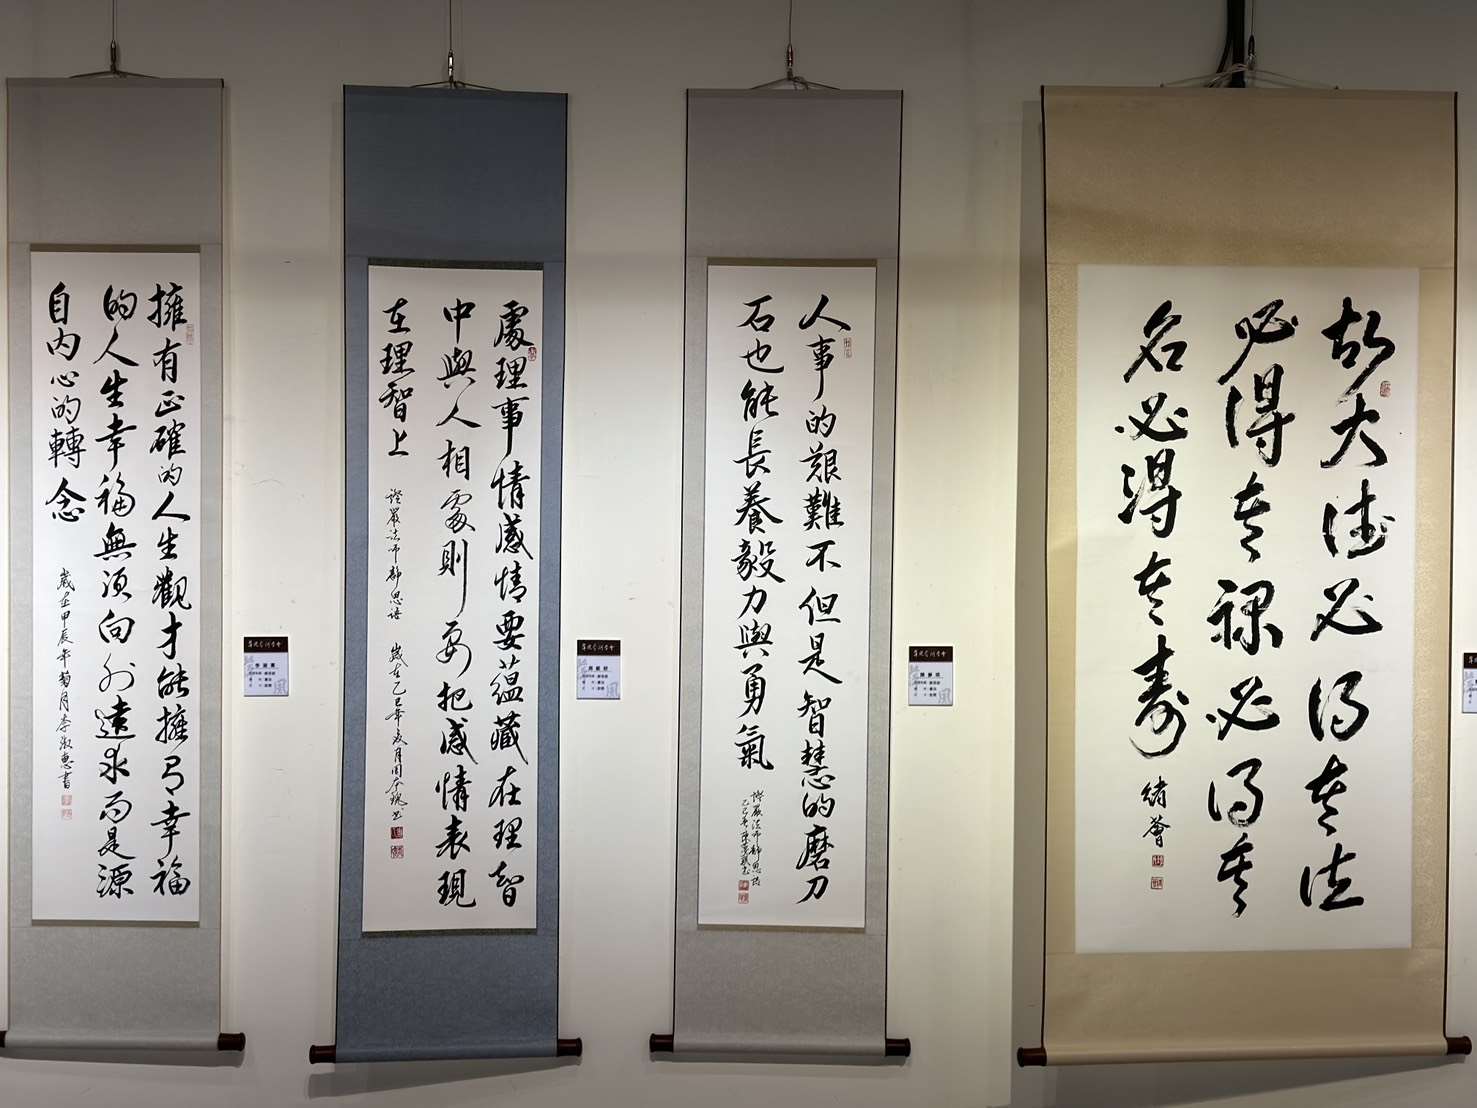 擁有正確的人生觀才能擁有幸福
的人生幸福無須向外遠求而是源
自內心的轉念
歲在甲辰年菊月李淑惠書
處理事情感情要蘊藏在理智
中與人相處則要把感情表現
在理智上
證嚴法師靜思語 歲在乙巳年
人事的艱難不但是智慧的磨刀
石也能長養毅力與勇氣
證嚴法師靜思語
乙巳年
故大德必得其位
必得其祿必得其
名必得其壽